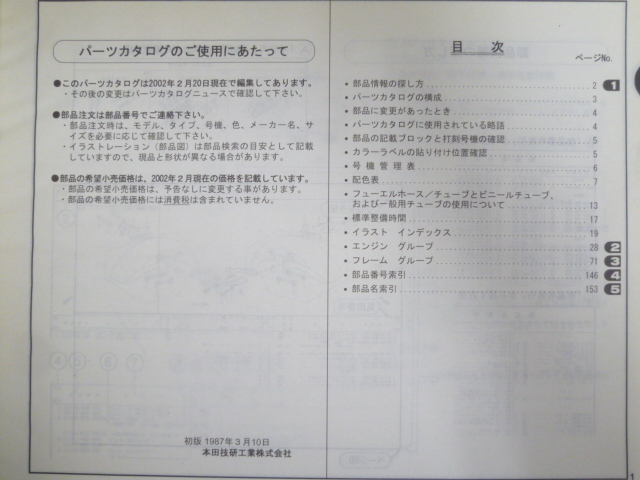 パーツカタログのご使用にあたって
●このパーツカタログは2002年2月20日現在で編集してあります。
・その後の変更はパーツカタログニュースで確認して下さい。
●部品注文は部品番号でご連絡下さい。
・部品注文時は、モデル、タイプ、号機、色、メーカー名、サ
イズを必要に応じて確認して下さい。
・イラストレーション（部品図）は部品検索の目安として記載
していますので、現品と形状が異なる場合があります。
●部品の希望小売価格は、2002年2月現在の価格を記載しています。
・部品の希望小売価格は、予告なしに変更する事があります。
・部品の希望小売価格には消費税は含まれていません。
初版 1987年3月10日
本田技研工業株式会社
目 次
ページNo.
・部品情報の探し方 2 1
・パーツカタログの構成 3
・部品に変更があったとき 4
・パーツカタログに使用されている略語 4
・部品の記載ブロックと打刻号機の確認 5
・カラーラベルの貼り付け位置確認 5
・号機管理表 6
・配色表 7
・フューエルホース／チューブとビニールチューブ、
および一般用チューブの使用について 13
・標準整備時間 17
・イラスト インデックス 19
・エンジン グループ 28 2
・フレーム グループ 71 3
・部品番号索引 146 4
・部品名索引 153 5
1